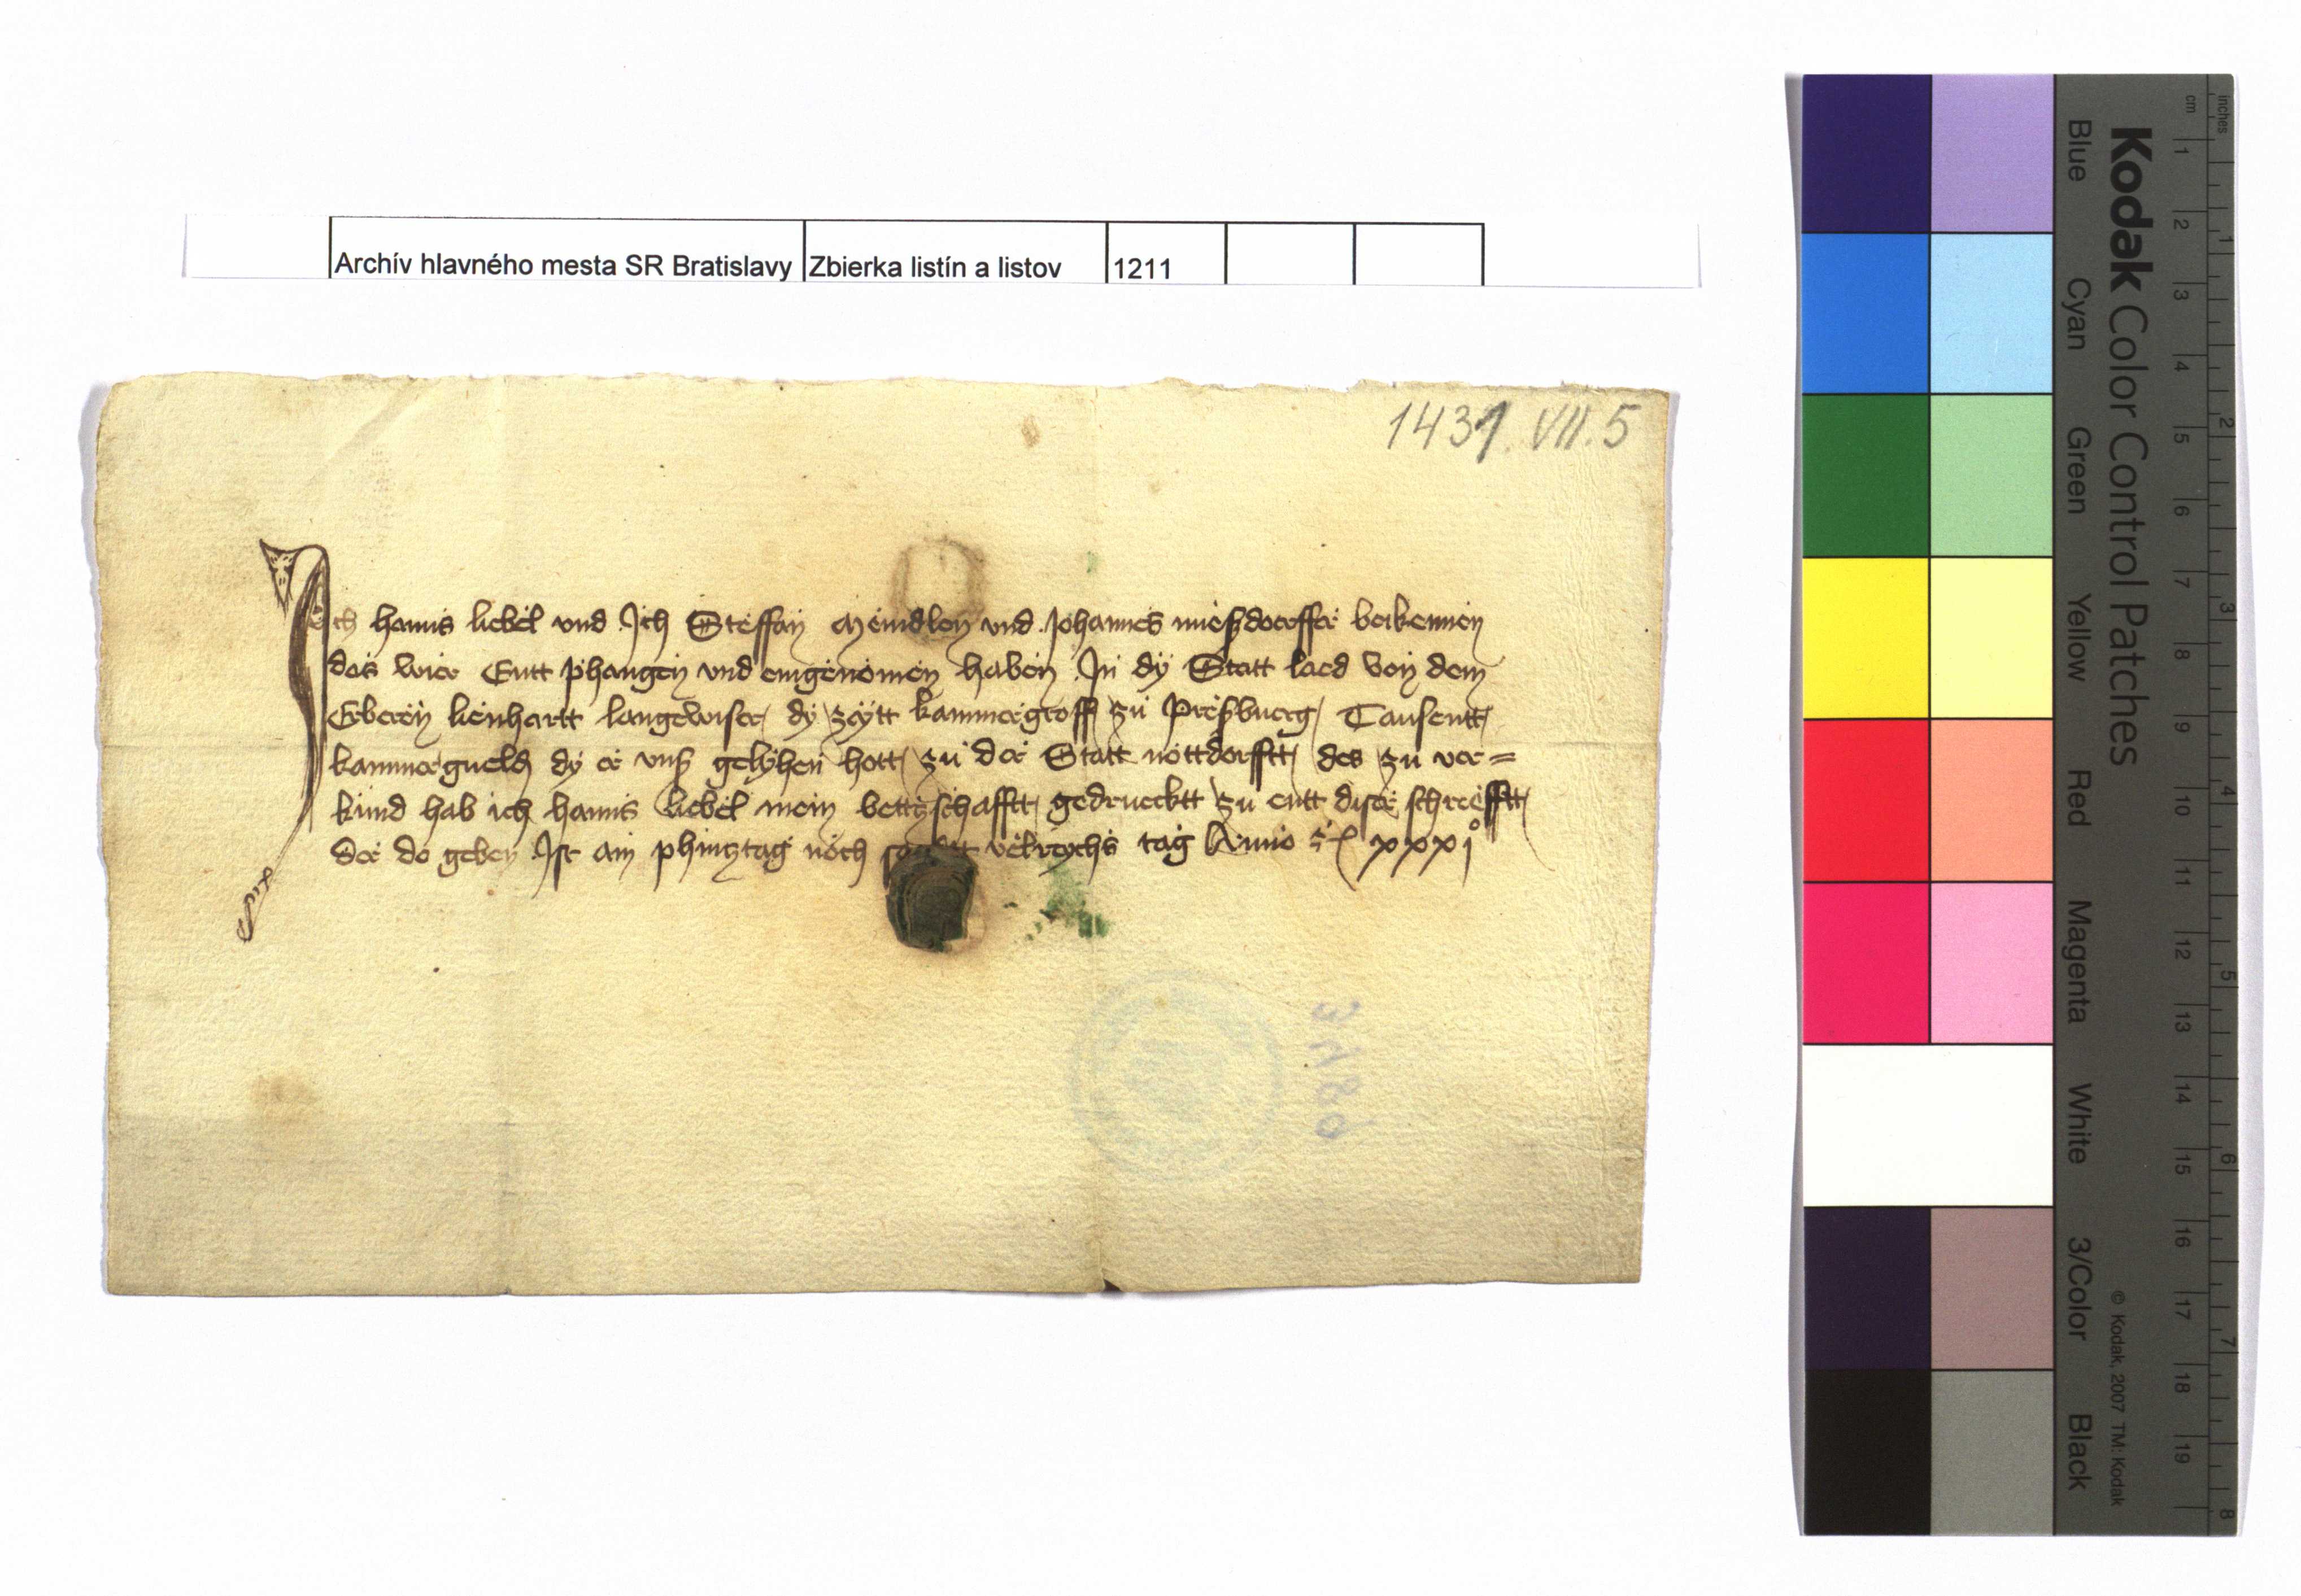 Archív hlavného mesta SR Bratislavy Zbierka listín a listov 1211
1431 VII. 5
Ich hanns liebel vnd Ich Steffan vnd Johannes miesdorffer bekennen
das wier Entt phangen vnd eingenomen haben In dy Statt lad von dem
Erberen lienhartt langewiser dy zeytt kammergroff zu Presbuerg Tausentt
kammerguelden dy er vns gelyhen hott zu der Statt nottdorfftt des zu ver=
kund hab ich hanns liebel mein bettzschafftt gedrucktt zu entt diser schriefftt
der do geben Ist am phincztag noch velreychs tag Anno xxxi°
3480
Kodak Color Control Patches
Blue Cyan Green Yellow Red Magenta White 3/Color Black
© Kodak, 2007 TM: Kodak
inches 1 2 3 4 5 6 7 8
cm 1 2 3 4 5 6 7 8 9 10 11 12 13 14 15 16 17 18 19